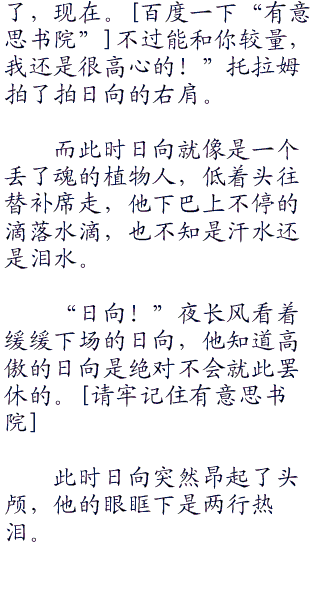 了，现在。[百度一下“有意
思书院”]不过能和你较量，
我还是很高心的！”托拉姆
拍了拍日向的右肩。
而此时日向就像是一个
丢了魂的植物人，低着头往
替补席走，他下巴上不停的
滴落水滴，也不知是汗水还
是泪水。
“日向！”夜长风看着
缓缓下场的日向，他知道高
傲的日向是绝对不会就此罢
休的。[请牢记住有意思书
院]
此时日向突然昂起了头
颅，他的眼眶下是两行热
泪。